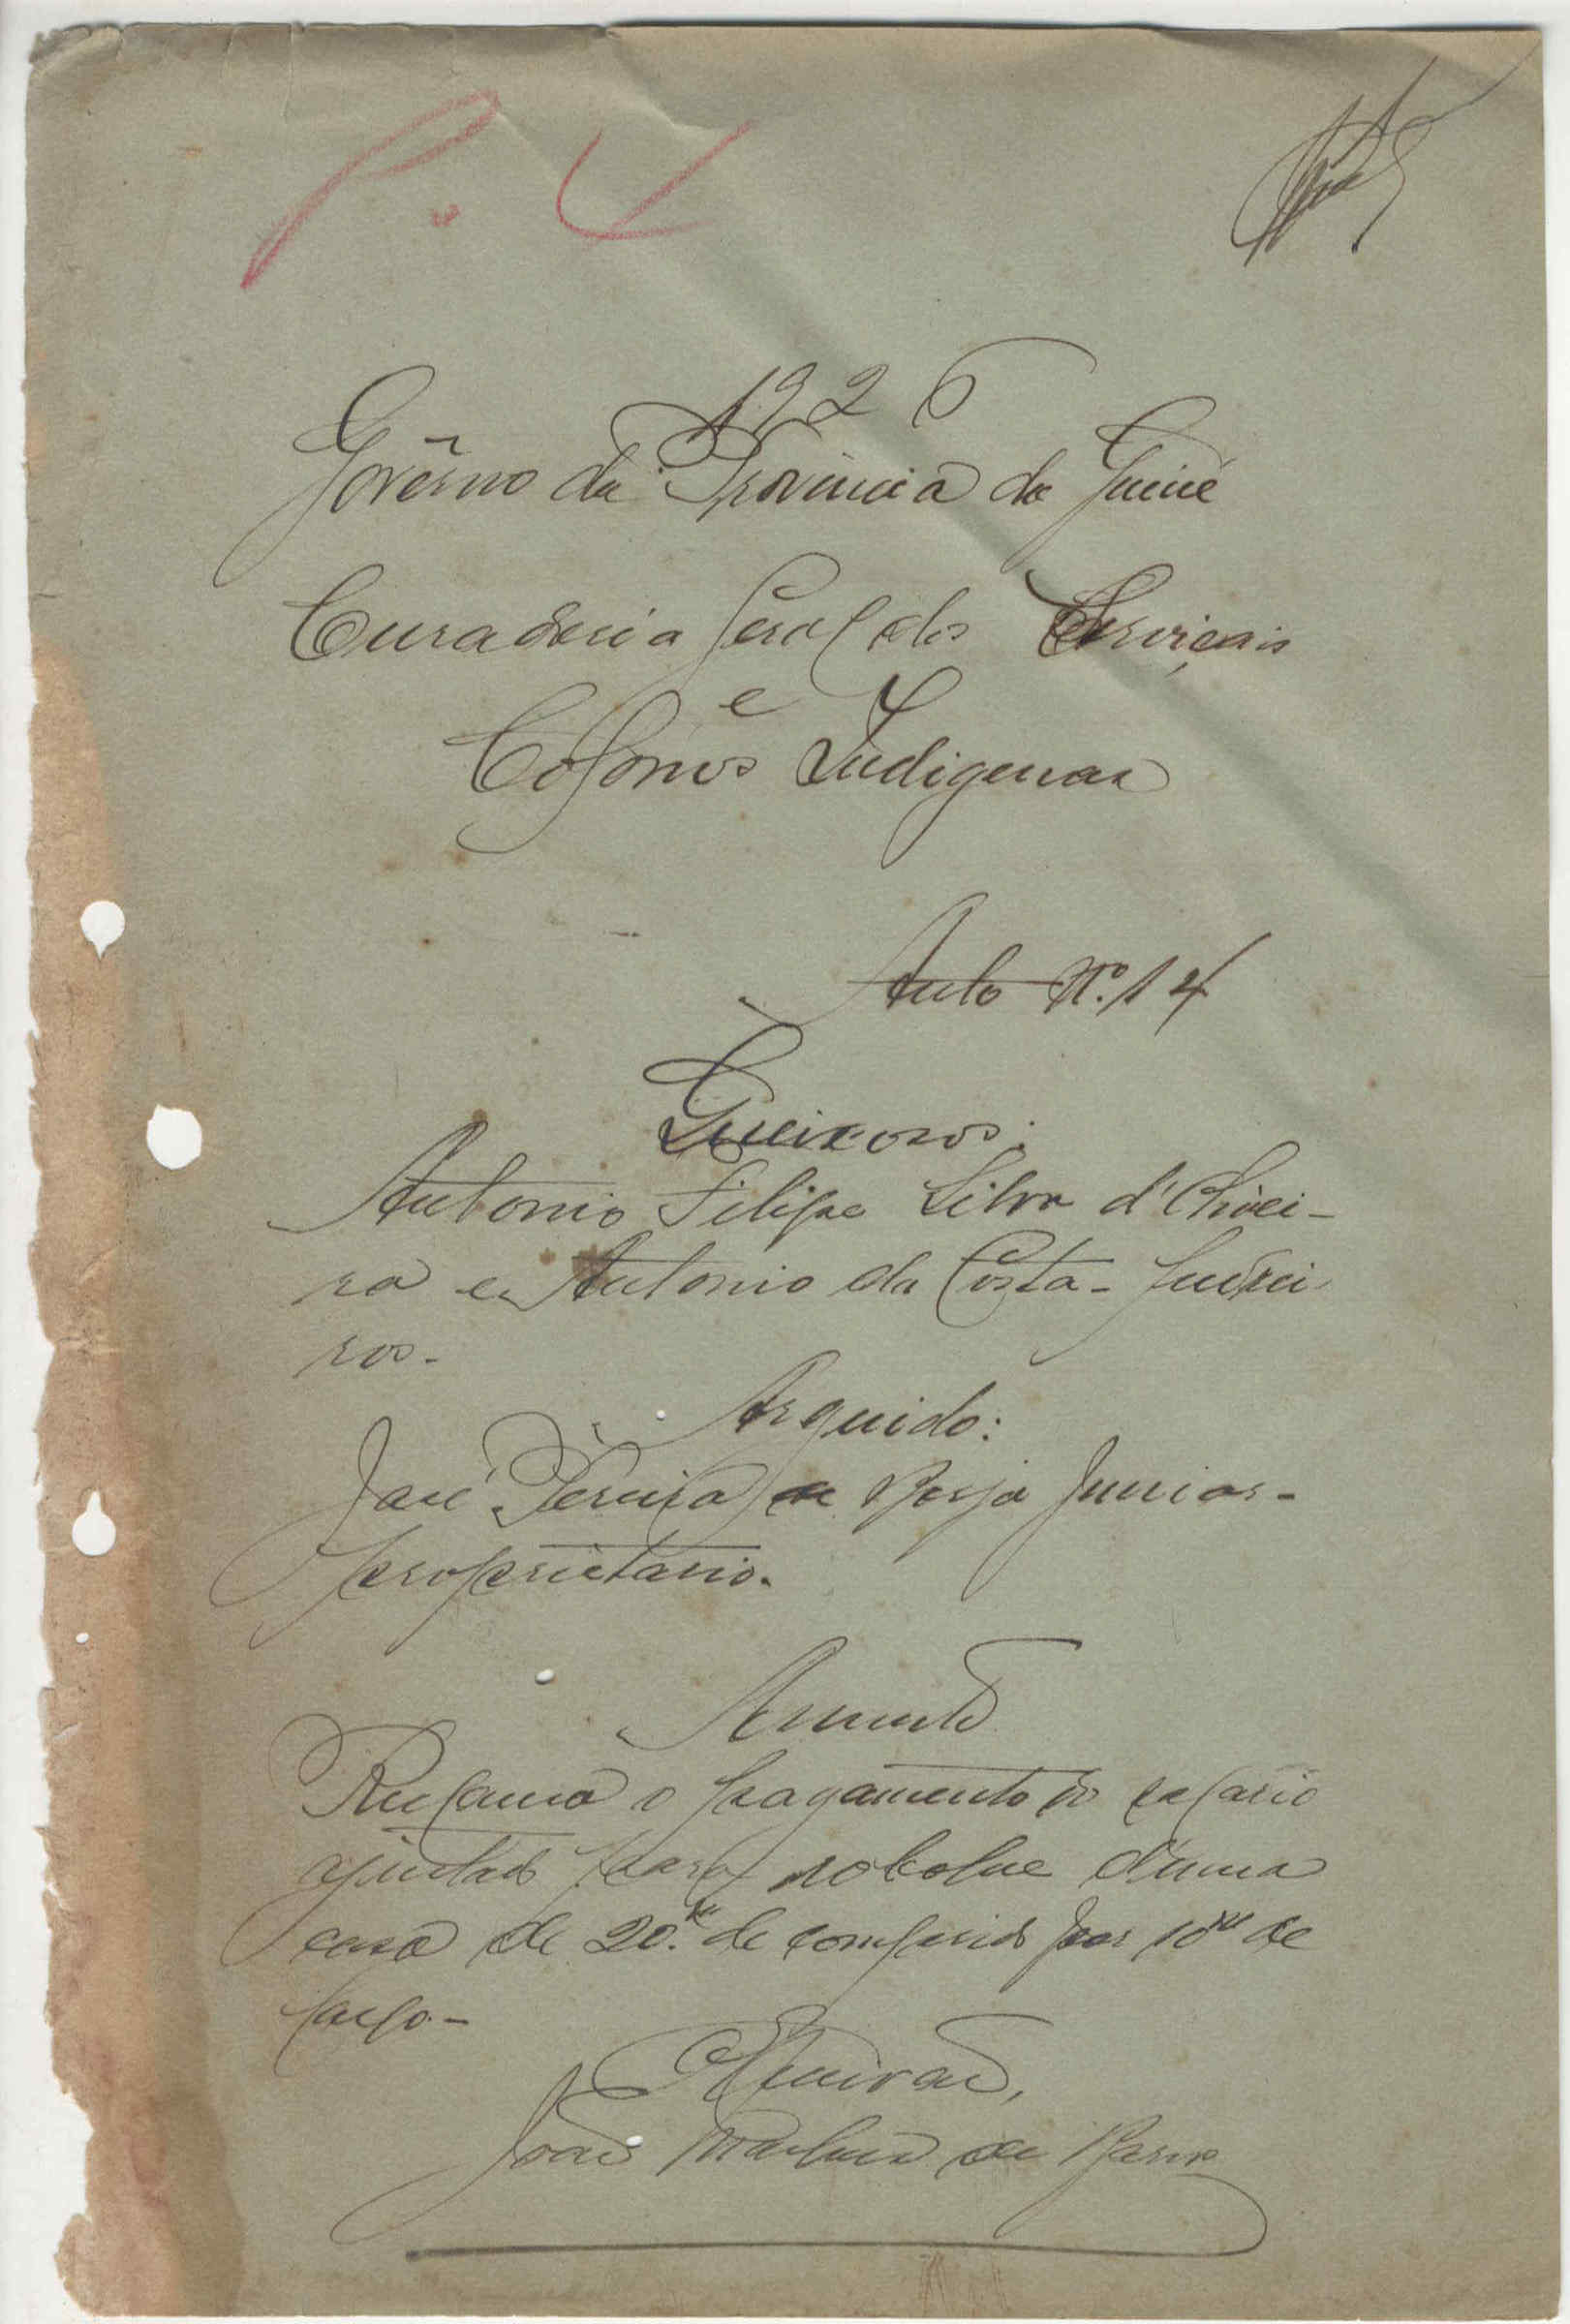 P. U
1926
Govêrno da Provincia da Guiné
Curadoria Geral dos Serviçais
e
Colonos Indigenas
Auto Nº. 14
Queixosos:
Antonio Filipe Silva d'Olivei-
ra e Antonio da Costa - pedrei
ros -
Arguido:
José Pereira de Borja Junior -
proprietario.
Assunto
Reclama o pagamento do salario
ajustado para reboque d'uma
casa de 20.m de comprido por 10m de
largo. -
O Escrivão,
João de Barros